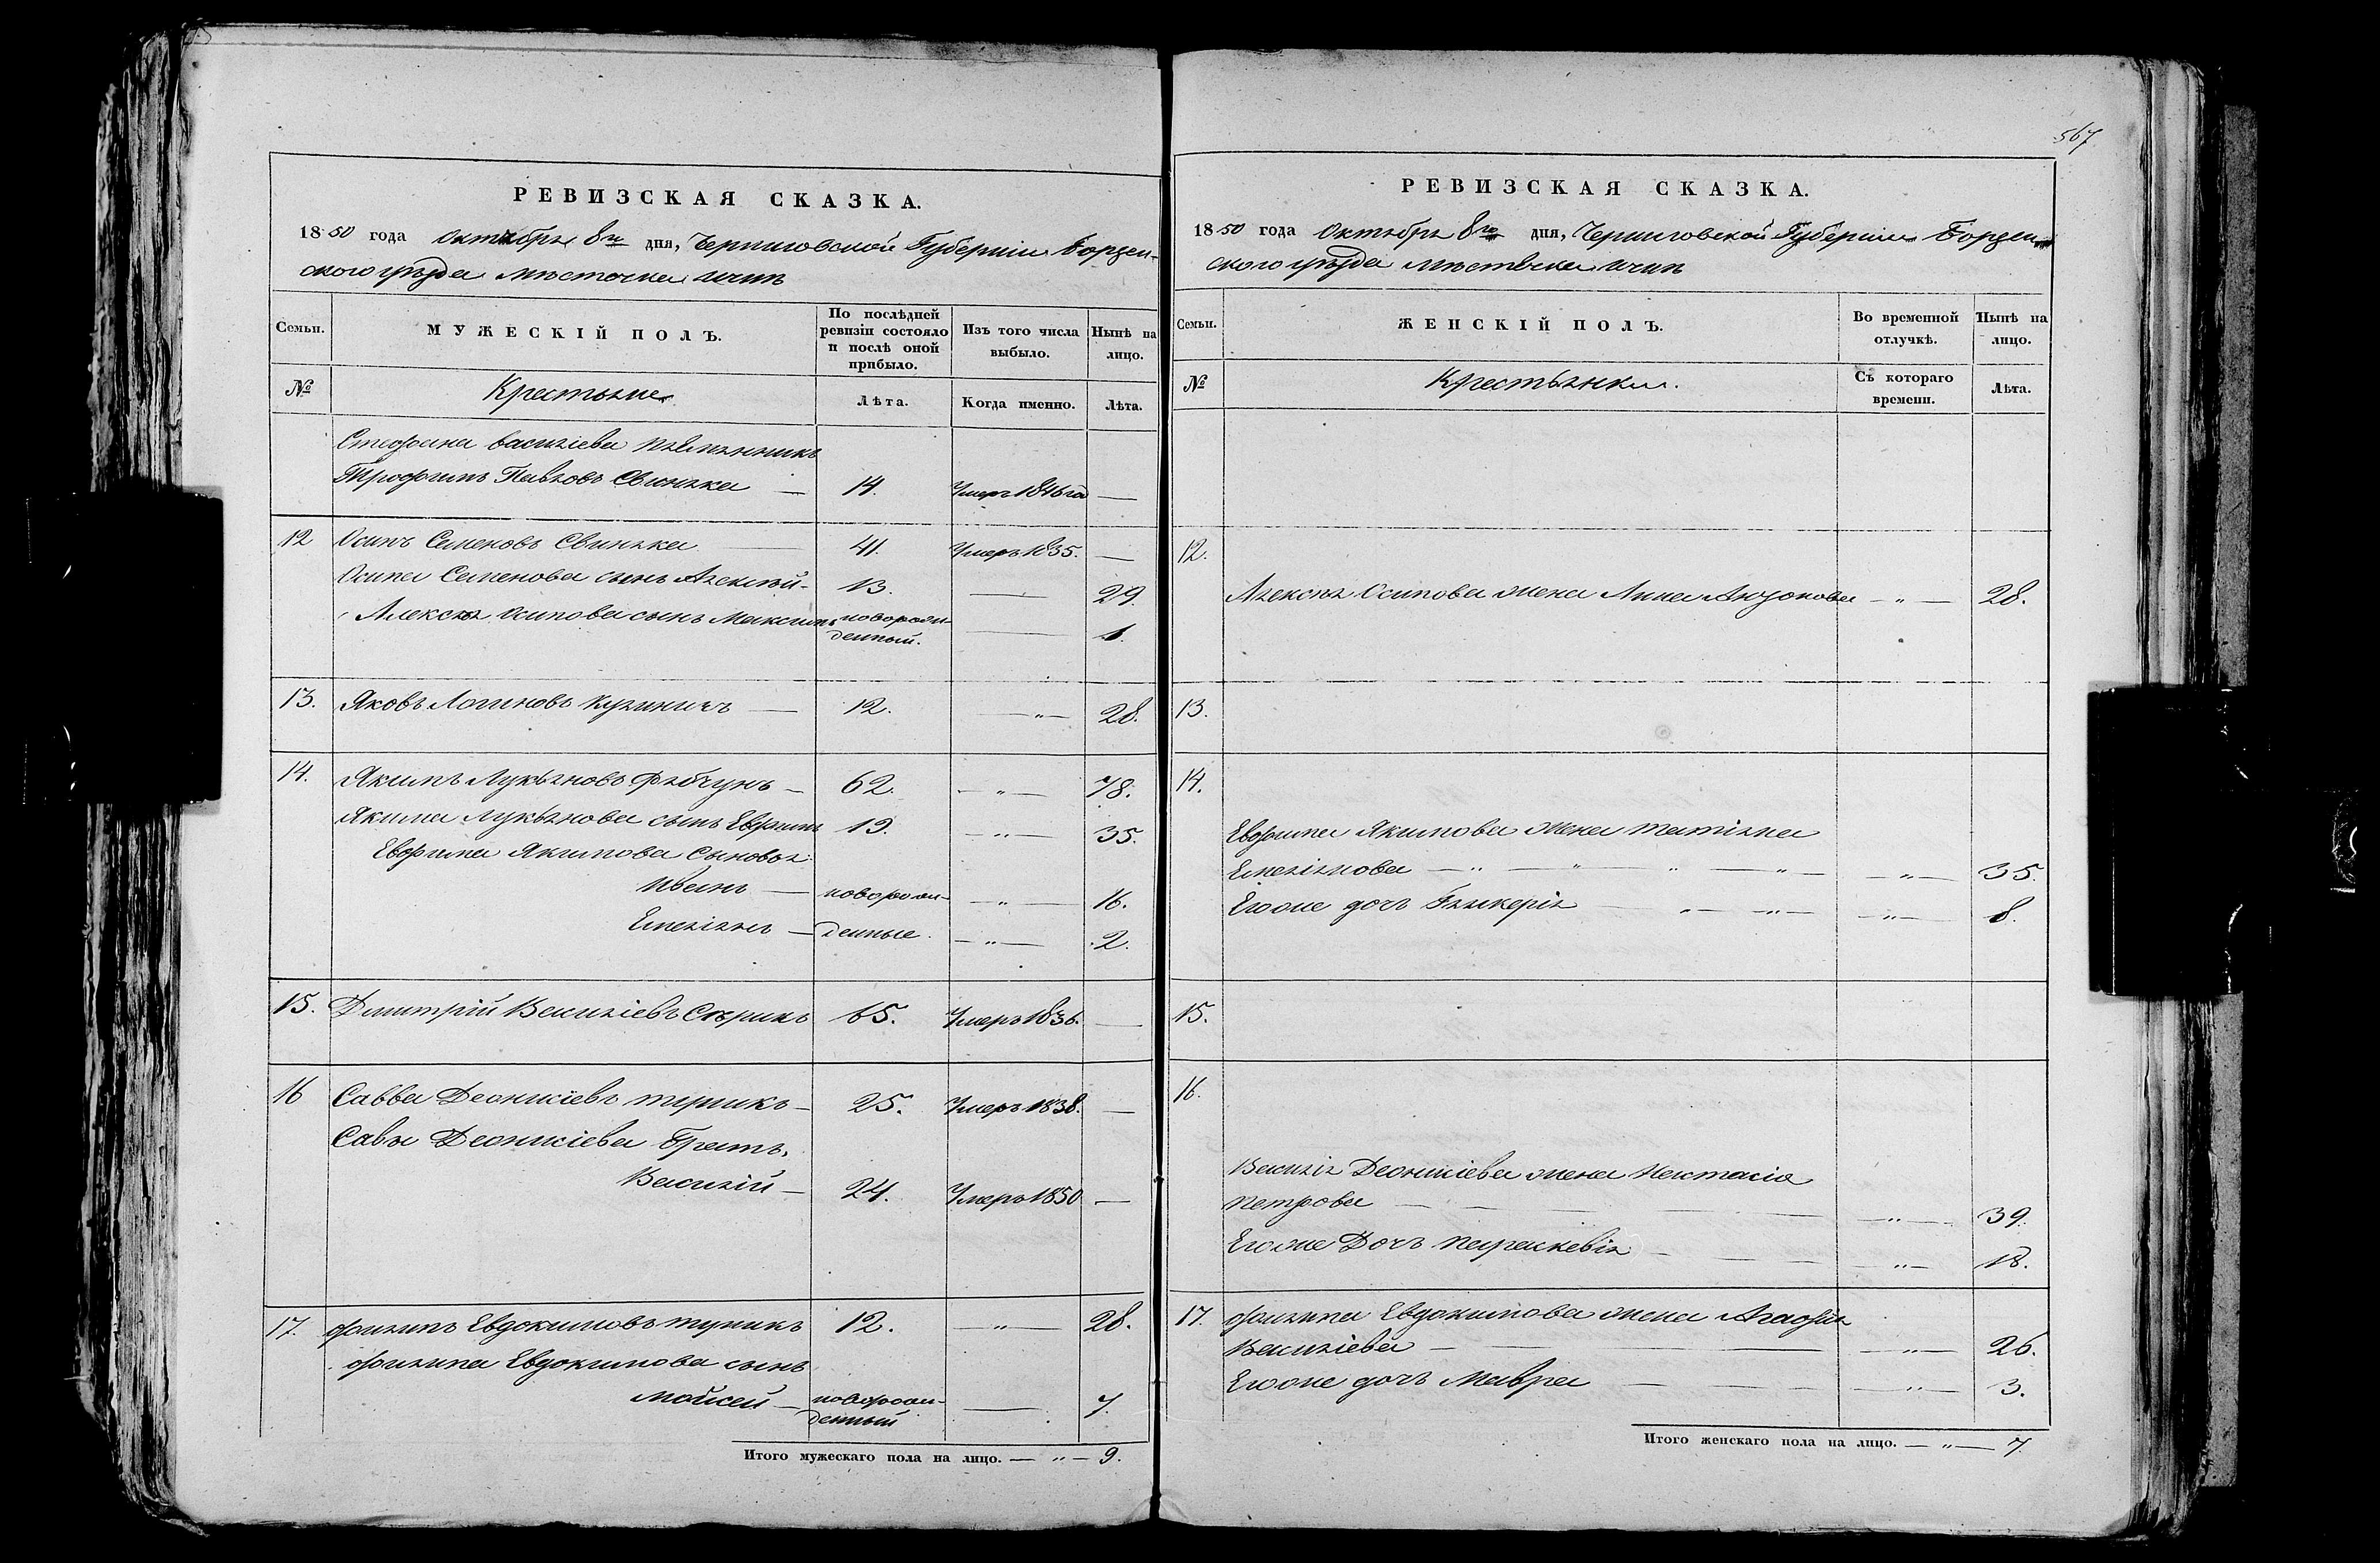 567
РЕВИЗСКАЯ СКАЗКА.
1850 года октября 8го дня, Черниговской Губернии Борзен-
ского уѣзда мѣсточка Ични
Семьи.
МУЖЕСКІЙ ПОЛЪ.
По послѣдней ревизіи состояло и послѣ оной прибыло.
Изъ того числа выбыло.
Нынѣ на лицо.
№
Крестьяне
Лѣта.
Когда именно.
Лѣта.
Стефана Василіева племянникъ
Трофимъ Павловъ Свинька — 14. Умеръ 1846го —
12 Осипъ Семеновъ Свинька — 41. Умеръ 1835. —
Осипа Семенова сынъ Алексѣй - 13. — 29.
Алексѣя Осипова сынъ Максимъ новорож-
денный. — 1.
13. Яковъ Логиновъ — 12. — „ — 28.
14. Якимъ Лукьяновъ Рябчунъ — 62. — „ — 78.
Якима Лукьянова сынъ Евфимъ 19. — „ — 35.
Евфима Якимова сыновья:
Иванъ — новорож- — „ — 16.
Емеліянъ — денные. — „ — 2.
15. Дмитрій Василіевъ Сѣрикъ 65. Умеръ 1836. —
16 Савва Деонисіевъ — 25. Умеръ 1838. —
Савы Деонисіева братъ,
Василій — 24. Умеръ 1850 —
17. Филипъ Евдокимовъ 12. — „ — 28.
Филипа Евдокимова сынъ
Мойсей — новорож-
денный — 7.
Итого мужескаго пола на лицо. — „ — 9.
РЕВИЗСКАЯ СКАЗКА.
1850 года октября 8го дня, Черниговской Губернии Борзен-
ского уѣзда мѣстечка Ични
Семьи.
ЖЕНСКІЙ ПОЛЪ.
Во временной отлучкѣ.
Нынѣ на лицо.
№
Крестьянки.
Съ котораго времени.
Лѣта.
12.
Алексѣя Осипова жена Анна — „ — 28.
13.
14.
Евфима Якимова жена Татіяна
Емеліянова — „ — „ — „ — „ — — „ — 35.
Егоже дочь Гликерія — „ — „ — — „ — 8.
15.
16.
Василія Деонисіева жена Настасія
Петрова — — „ — 39.
Егоже Дочь Параскевія — — „ — 18.
17. Филипа Евдокимова жена Агафія
Василіева — — „ — 26.
Егоже дочь Мавра — — „ — 3.
Итого женскаго пола на лицо. — „ — 7.